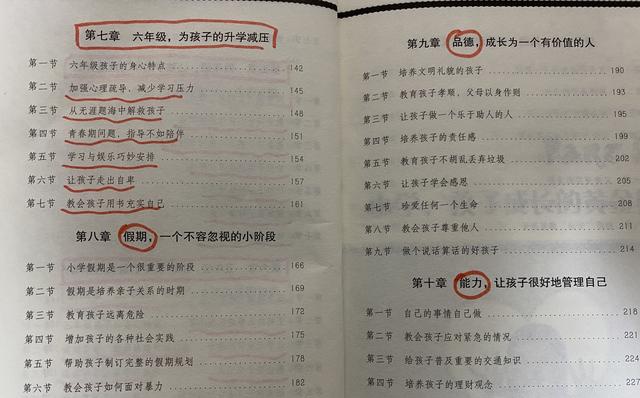 第七章 六年级，为孩子的升学减压
第一节 六年级孩子的身心特点 142
第二节 加强心理疏导，减少学习压力 145
第三节 从无涯题海中解救孩子 148
第四节 青春期问题，指导不如陪伴 151
第五节 学习与娱乐巧妙安排 154
第六节 让孩子走出自卑 157
第七节 教会孩子用书充实自己 161
第八章 假期，一个不容忽视的小阶段
第一节 小学假期是一个很重要的阶段 166
第二节 假期是培养亲子关系的时期 169
第三节 教育孩子远离危险 172
第四节 增加孩子的各种社会实践 175
第五节 帮助孩子制订完整的假期规划 178
第六节 教会孩子如何面对暴力 182
第九章 品德，成长为一个有价值的人
第一节 培养文明礼貌的孩子 190
第二节 教育孩子孝顺，父母以身作则 193
第三节 让孩子做一个乐于助人的人 195
第四节 培养孩子的责任感 199
第五节 教育孩子不胡乱丢弃垃圾 202
第六节 让孩子学会感恩 205
第七节 珍爱任何一个生命 208
第八节 教会孩子尊重他人 211
第九节 做个说话算话的好孩子 214
第十章 能力，让孩子很好地管理自己
第一节 自己的事情自己做 218
第二节 教会孩子应对紧急的情况 221
第三节 给孩子普及重要的交通知识 224
第四节 培养孩子的理财观念 227